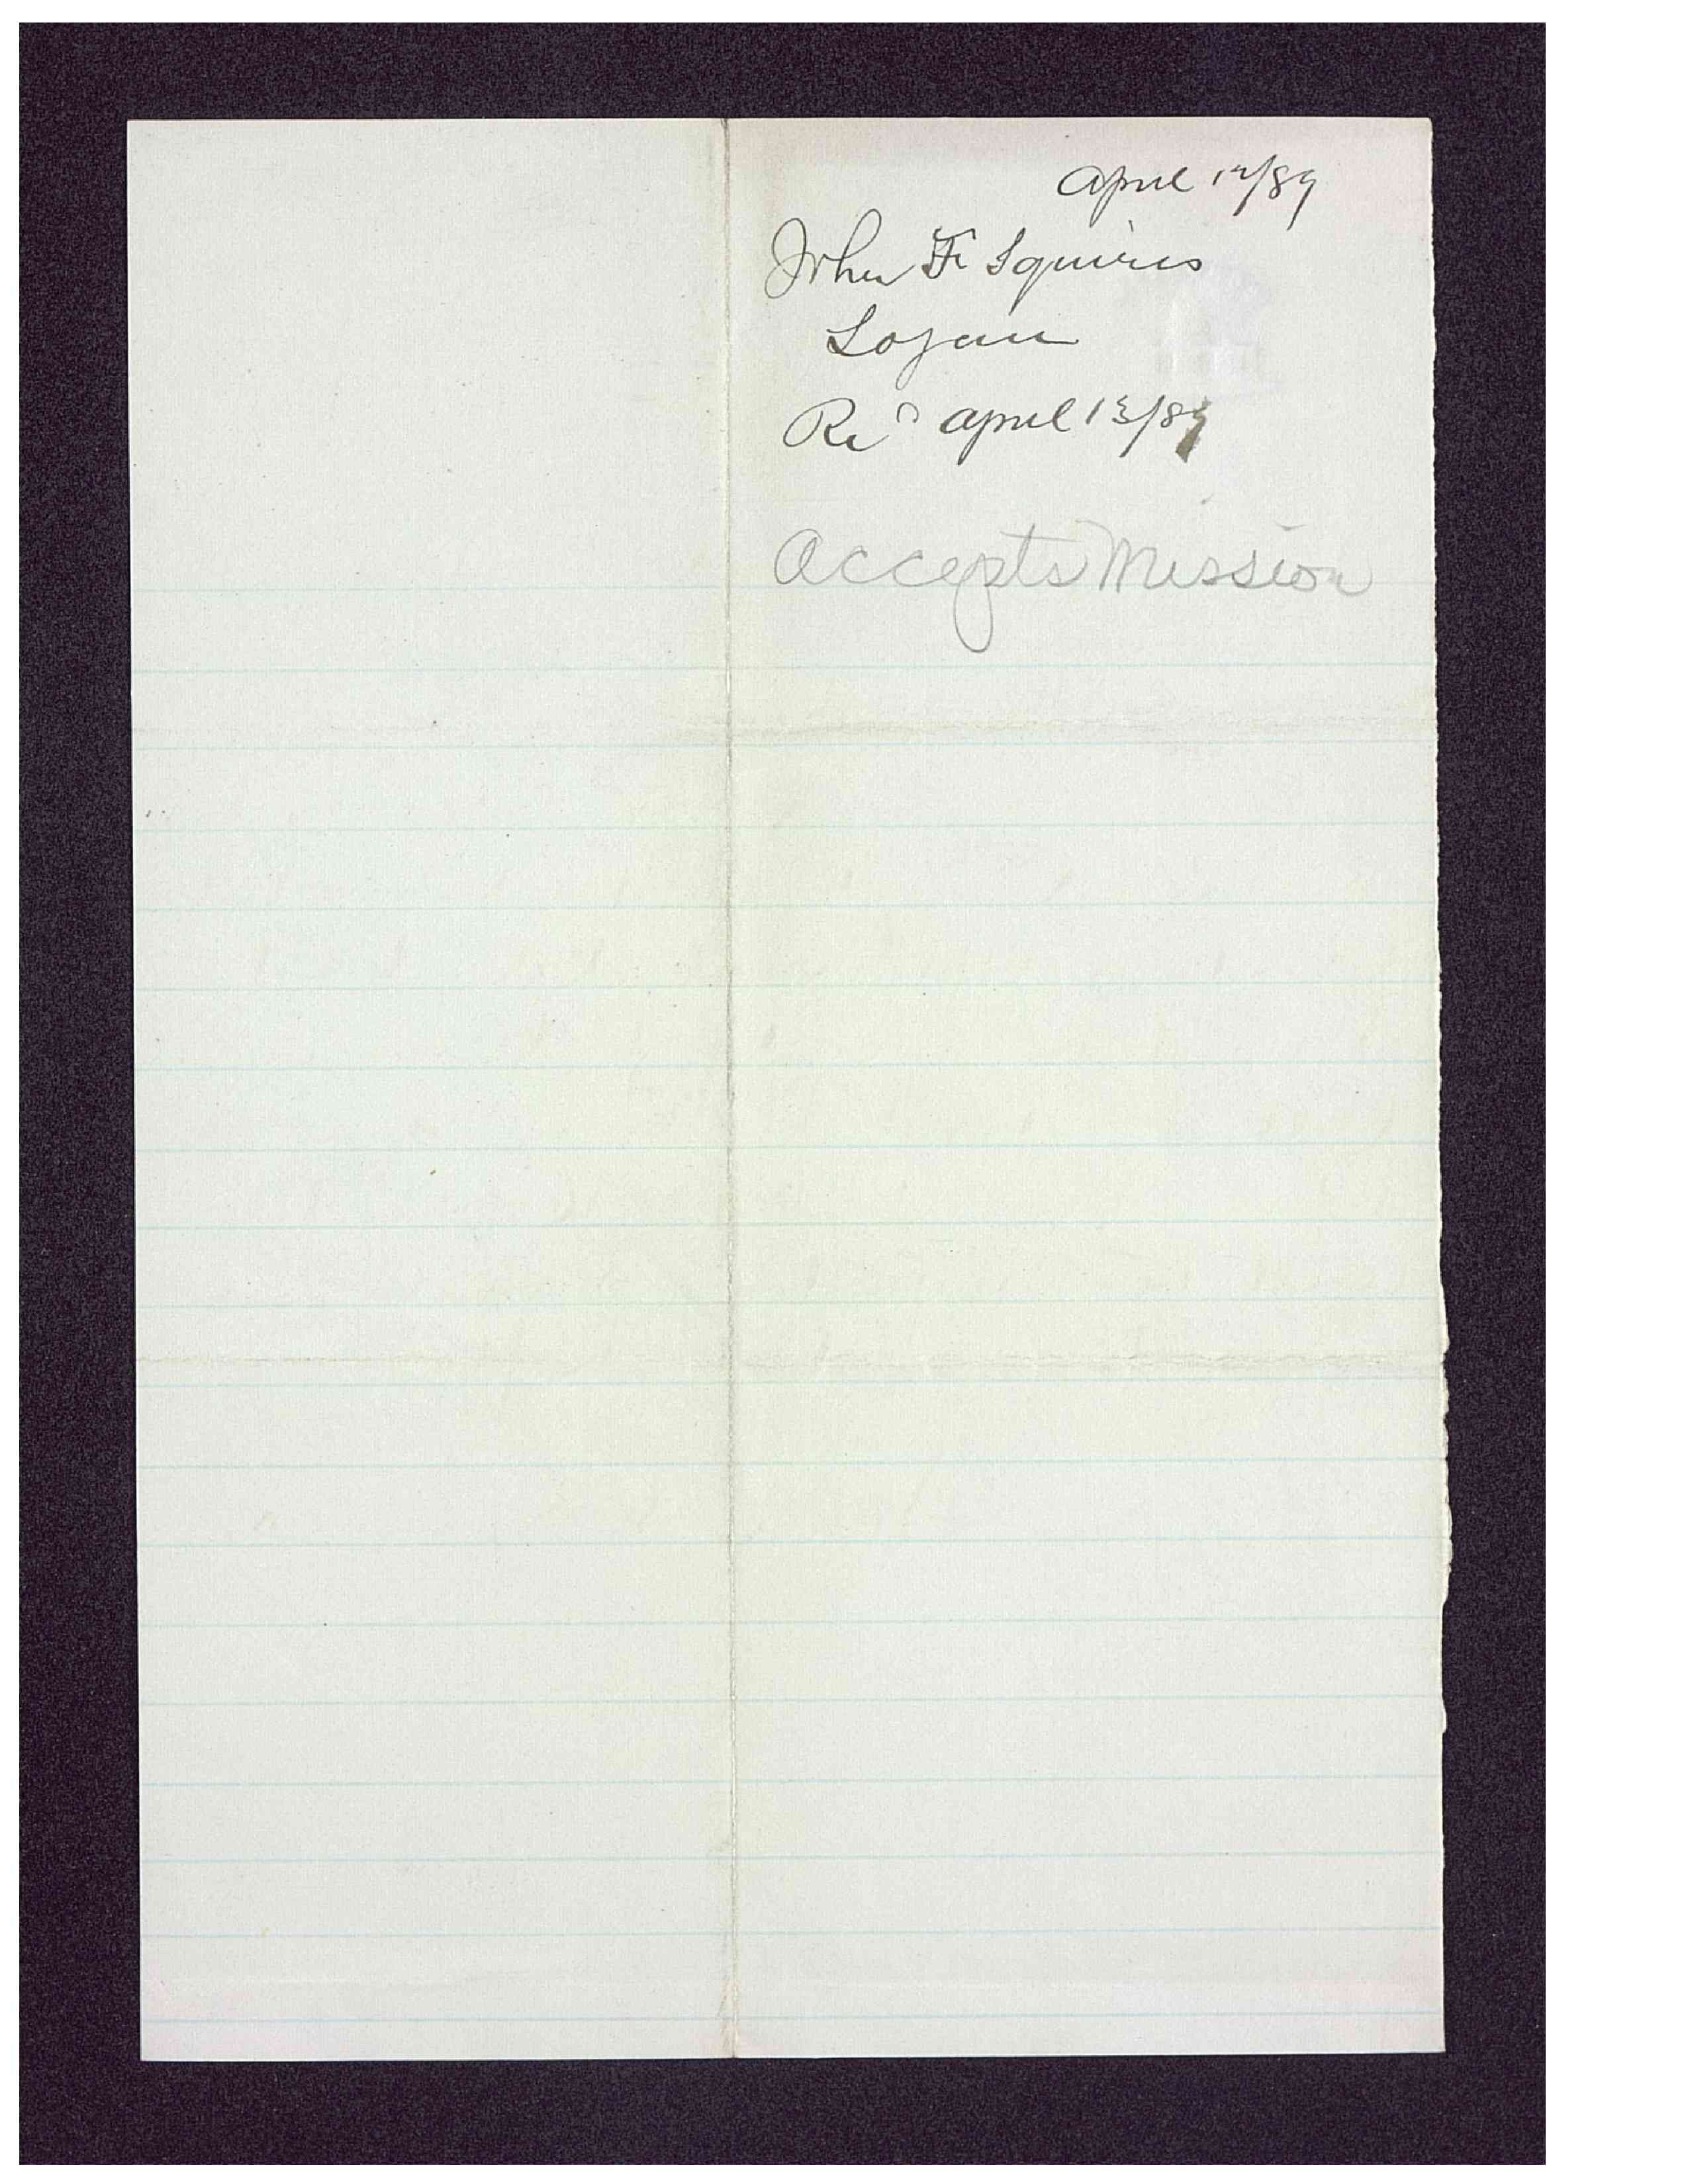 April 12/89
John F Squires
Logan
Recd April 13/89
Accepts Mission